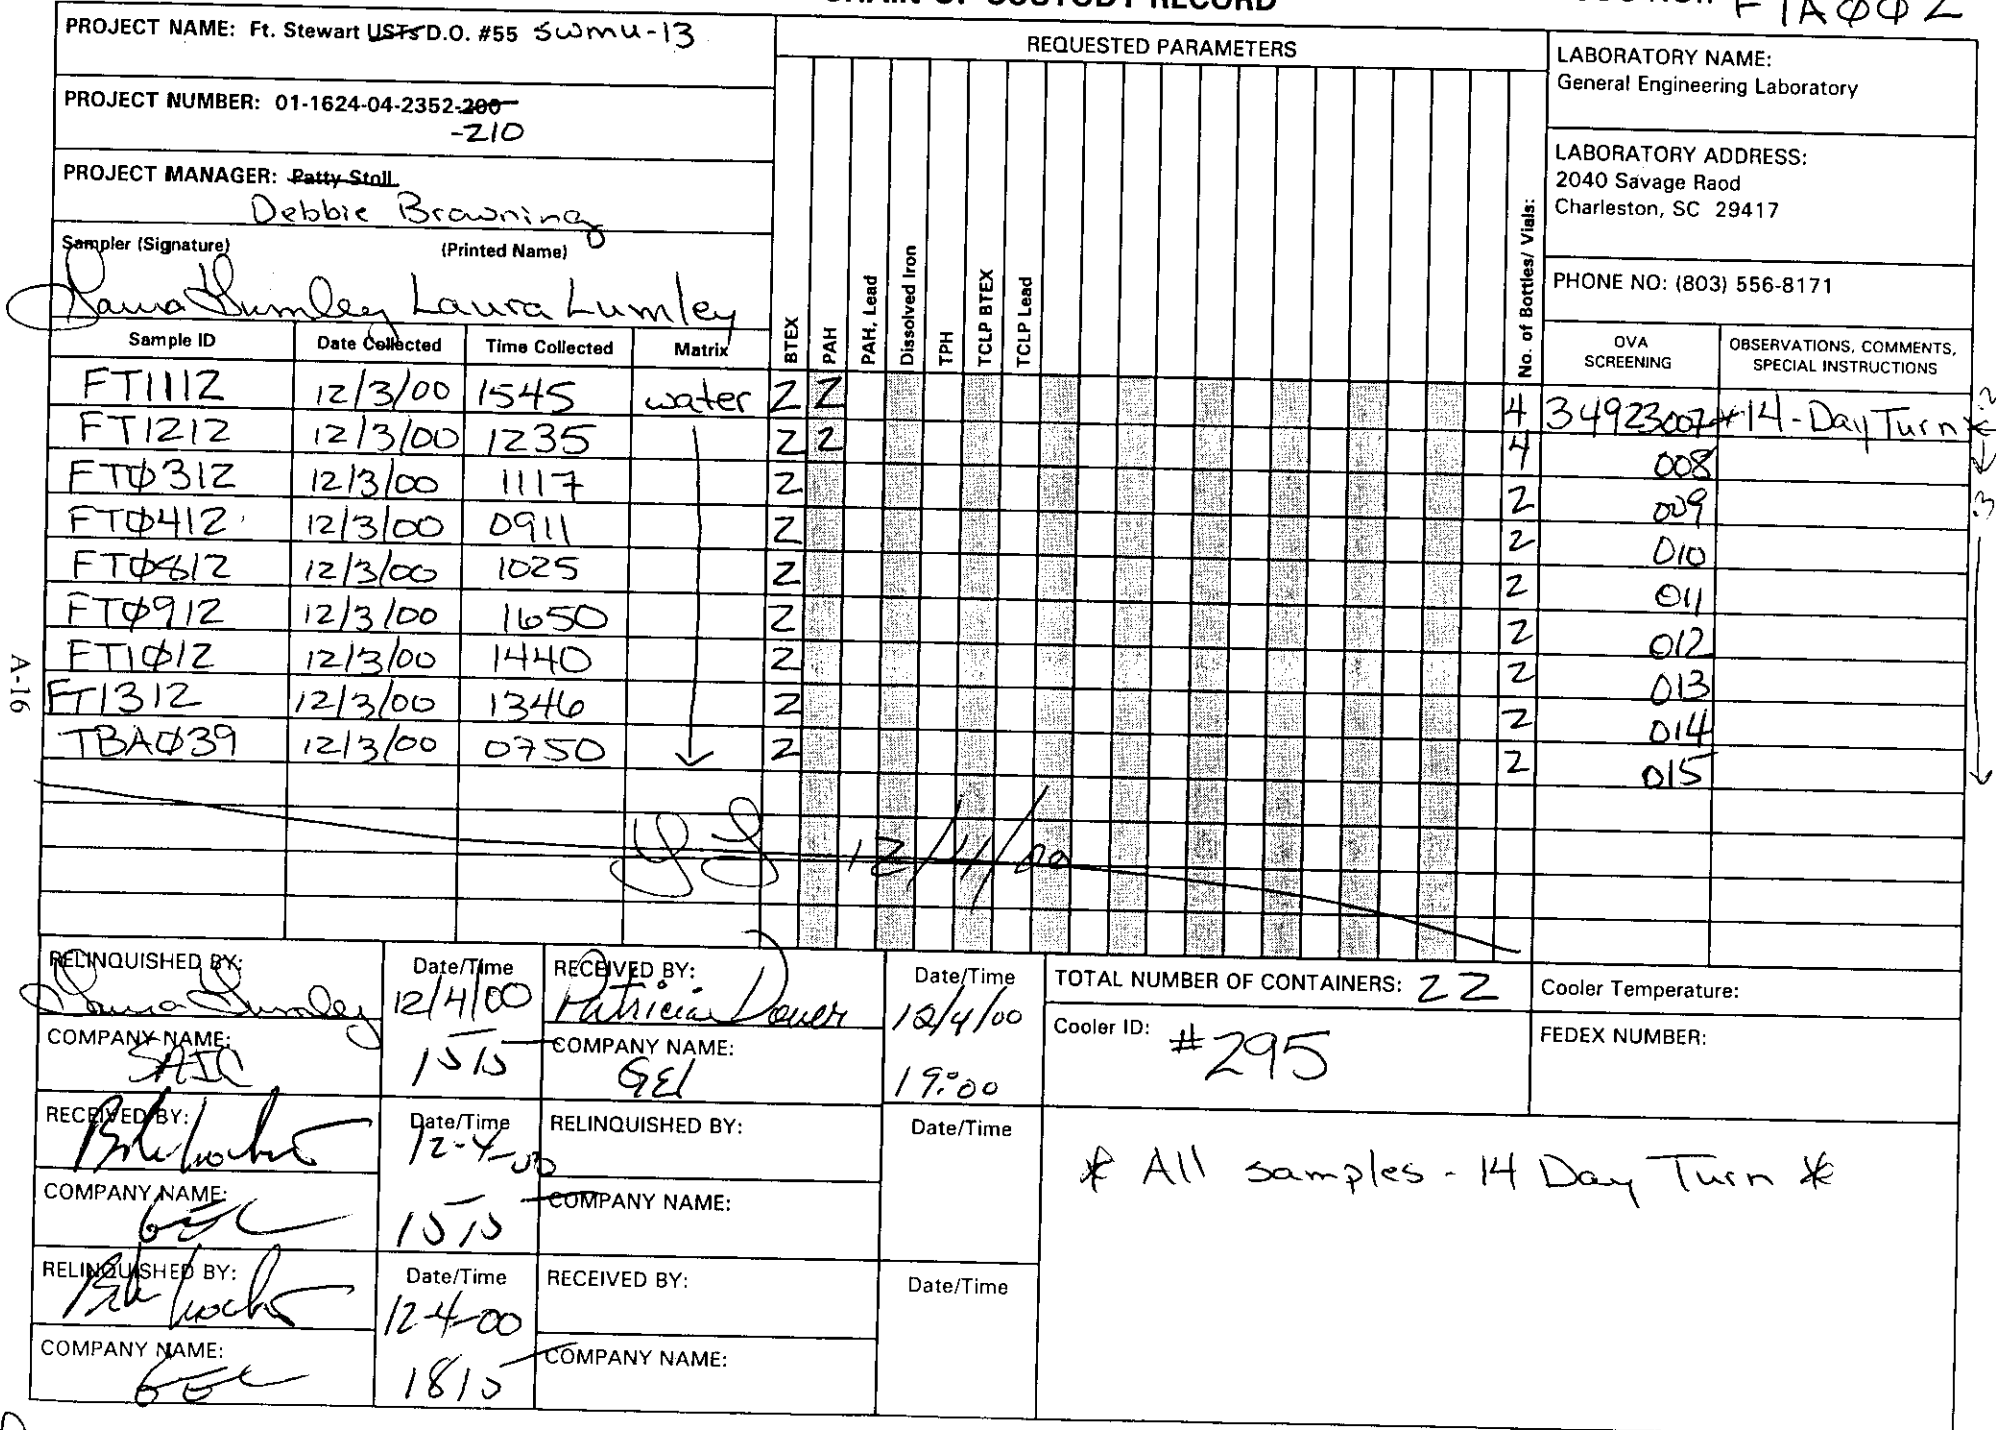 CHAIN OF CUSTODY RECORD
FTAØØ2
PROJECT NAME: Ft. Stewart USTs D.O. #55 SWMU-13
PROJECT NUMBER: 01-1624-04-2352-200
-210
PROJECT MANAGER: Patty Stoll
Debbie Browning
Sampler (Signature) (Printed Name)
Laura Lumley Laura Lumley
REQUESTED PARAMETERS
LABORATORY NAME:
General Engineering Laboratory
LABORATORY ADDRESS:
2040 Savage Raod
Charleston, SC 29417
PHONE NO: (803) 556-8171
Sample ID Date Collected Time Collected Matrix BTEX PAH PAH, Lead Dissolved Iron TPH TCLP BTEX TCLP Lead No. of Bottles/ Vials: OVA SCREENING OBSERVATIONS, COMMENTS, SPECIAL INSTRUCTIONS
FT1112 12/3/00 1545 water 2 2 4 34923007 *14-Day Turn*
FT1212 12/3/00 1235 2 2 4 008
FTØ312 12/3/00 1117 2 2 009
FTØ412 12/3/00 0911 2 2 010
FTØ812 12/3/00 1025 2 2 011
FTØ912 12/3/00 1650 2 2 012
FT1Ø12 12/3/00 1440 2 2 013
FT1312 12/3/00 1346 2 2 014
TBAØ39 12/3/00 0750 2 2 015
12/4/00
A-16
RELINQUISHED BY: Laura Lumley
Date/Time 12/4/00 1515
COMPANY NAME: SAIC
RECEIVED BY: Patricia Dover
Date/Time 12/4/00 19:00
COMPANY NAME: GEL
TOTAL NUMBER OF CONTAINERS: 22
Cooler Temperature:
Cooler ID: #295
FEDEX NUMBER:
RECEIVED BY:
Date/Time 12-4-00 1515
COMPANY NAME: GEL
RELINQUISHED BY:
Date/Time
COMPANY NAME:
* All samples - 14 Day Turn *
RELINQUISHED BY:
Date/Time 12-4-00 1815
COMPANY NAME: GEL
RECEIVED BY:
Date/Time
COMPANY NAME: